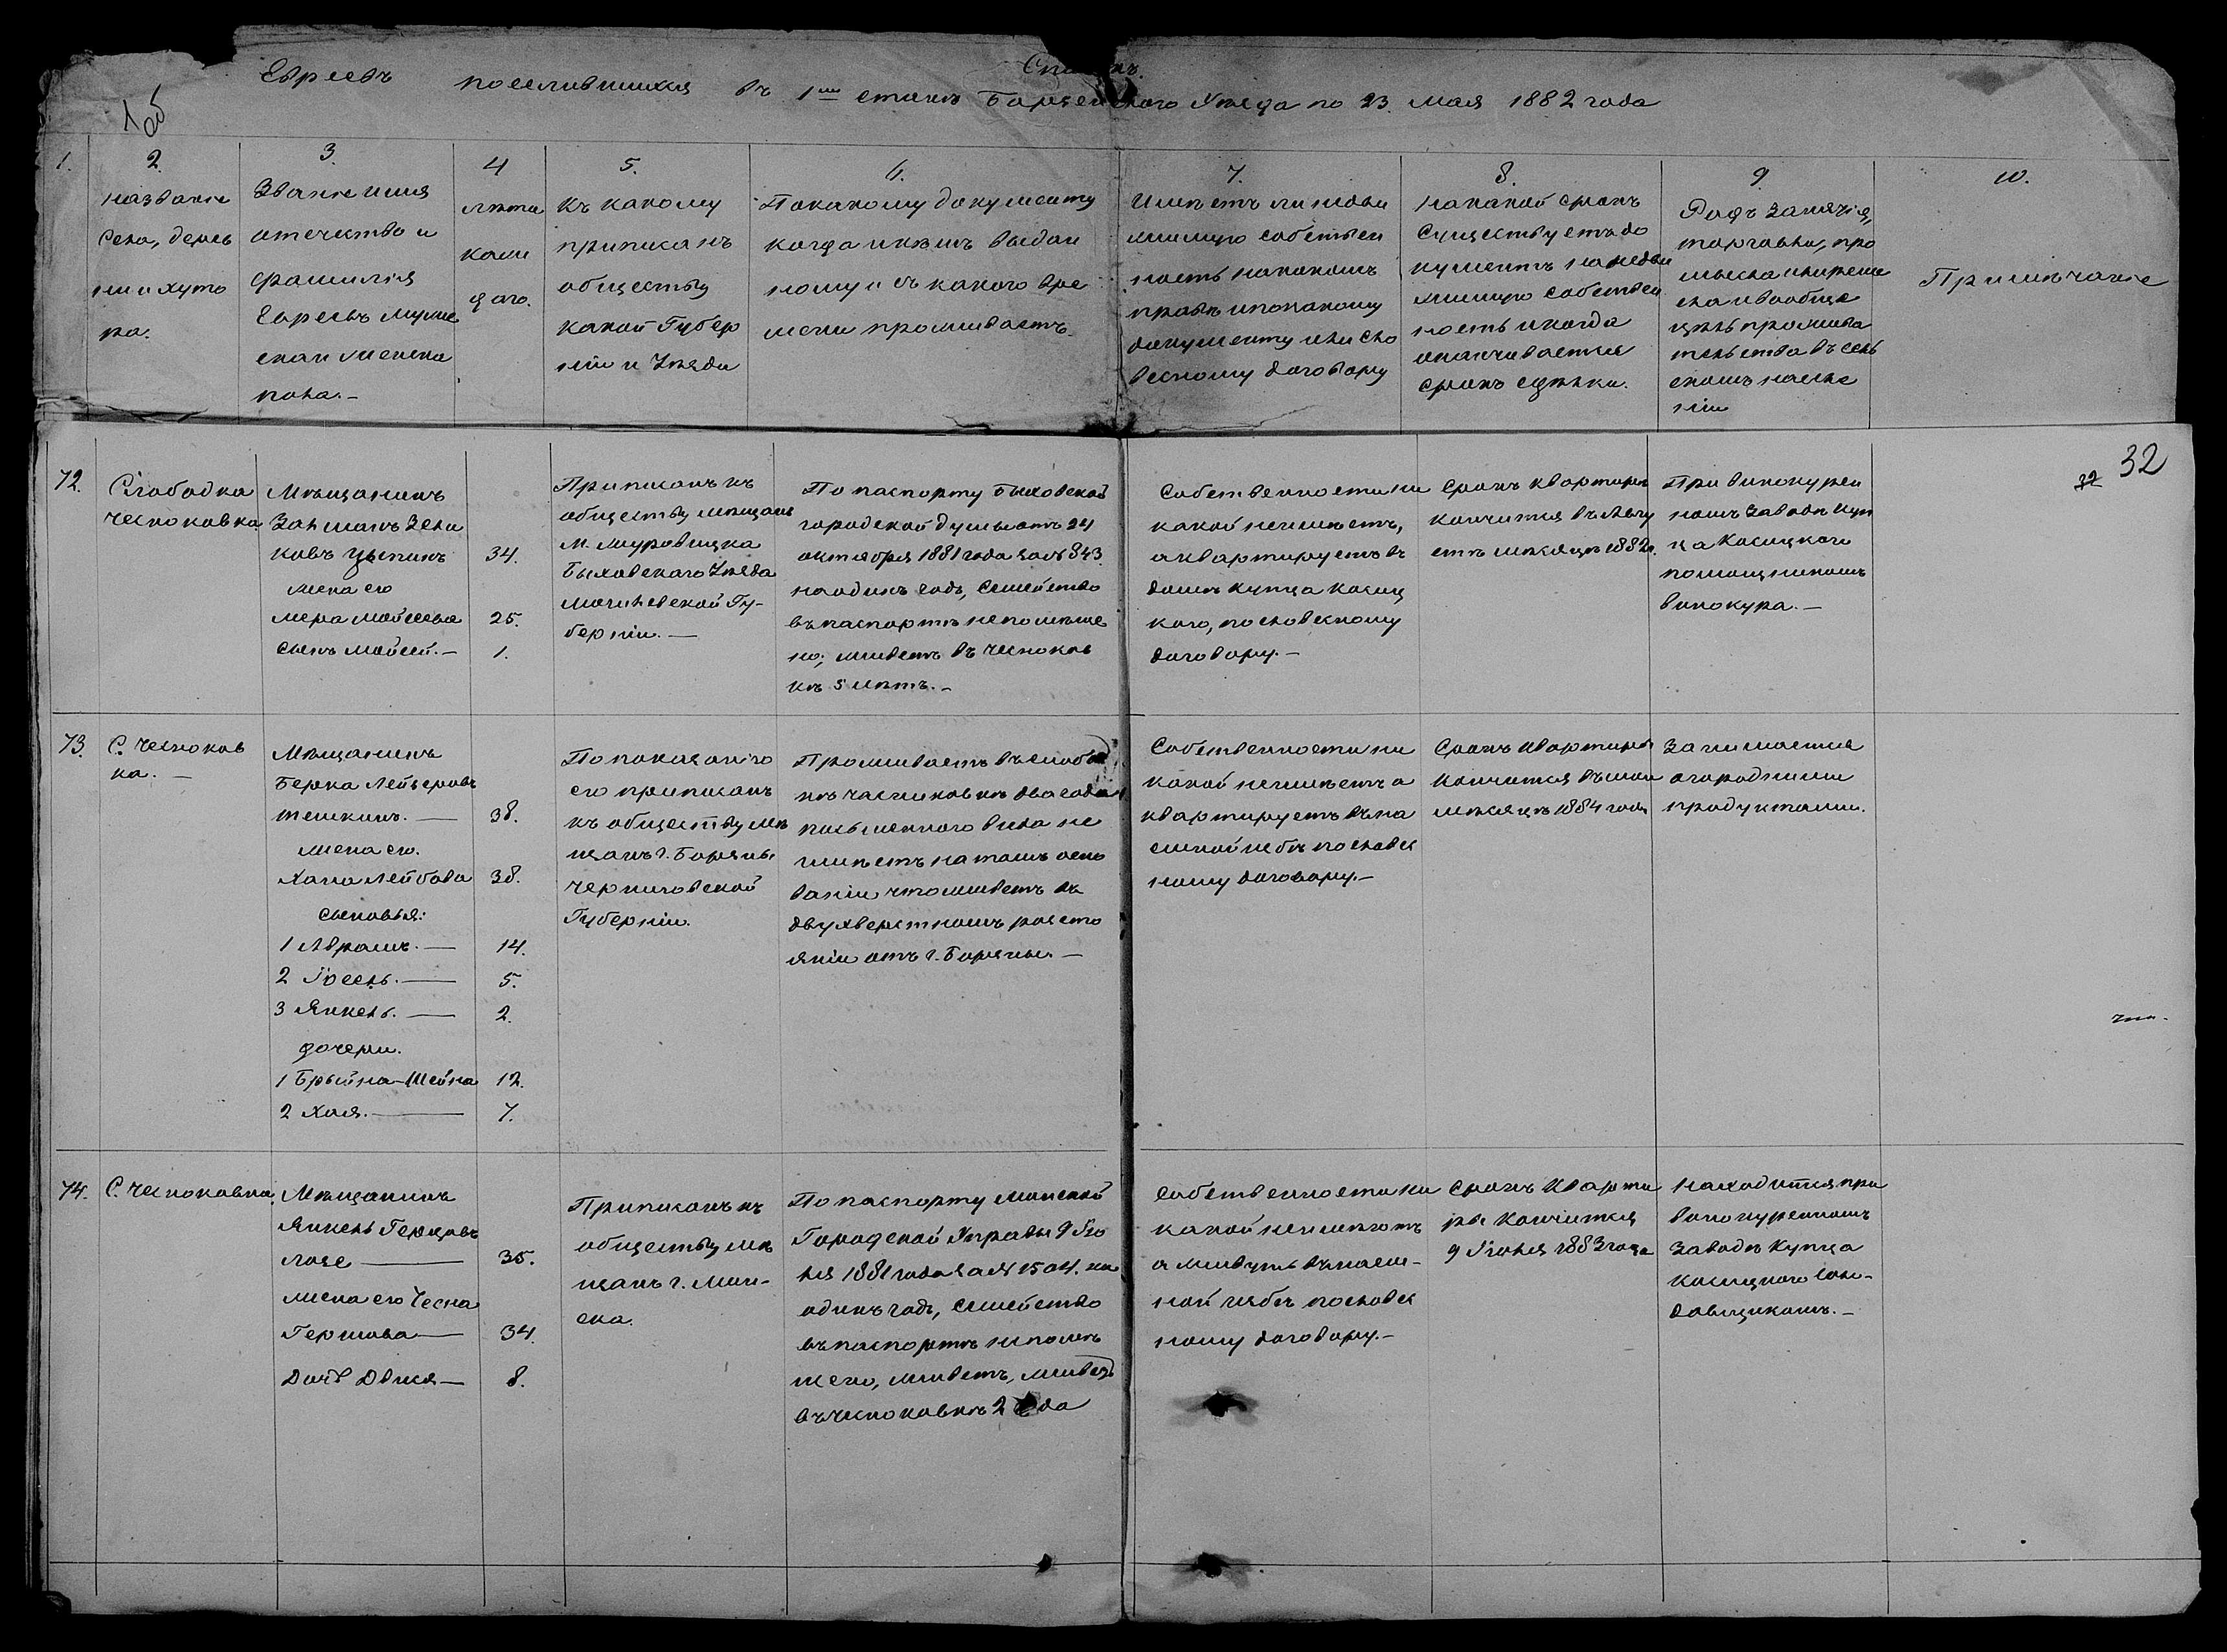 Списокъ.
Евреевъ поселившихся въ 1мъ станѣ Борзенского Уѣзда по 23 мая 1882 года
1.
2.
Названіе
Села, дерев
ни и хуто
ра.
3.
Званіе имя
отечество и
фамилія
Евреевъ мужс
скаи женска
пола.—
4
лѣта
кажд
даго.
5.
Къ какому
приписанъ
обществу
какой Губер
ніи и Уѣзда
6.
По какому документу
когда и кѣмъ выдан
ному и съ какого вре
мени проживаетъ
7.
Имѣетъ ли недви
жимую собствен
ность на какомъ
правѣ и по какому
документу или сло
весному договору
8.
На какой срокъ
существуетъ до
кументъ на недви
жимую собствен
ность и когда
оканчивается
срокъ сдѣлки.
9
Родъ занятія,
торговли, про
мысла и ремес
ла и вообще
цѣль прожива
тельства въ сель
скомъ населе
ніи
10.
Примѣчаніе
32
32
72.
Слободка
Чесноковка
Мѣщанинъ
Залманъ Зели
ковъ Цыпинъ
34.
жена его
Мера Мойсеева
25.
сынъ Мойсей.—
1.
Приписанъ къ
обществу мѣщанъ
М. Журовичка
Быховского Уѣзда
Могилевской Гу-
берніи.—
По паспорту Быховской
городской думы отъ 24
октября 1881 года за № 843.
на одинъ годъ, семейство
въ паспортѣ не помѣще
но, живетъ въ Чесноков
кѣ 5 лѣтъ.—
Собственности ни
какой не имѣетъ,
а квартируетъ въ
домѣ купца Косиц
кого, по словесному
договору.—
Срокъ квартиры
кончится въ Авгу
стѣ мѣсяцѣ 1882г.
При винокурен
номъ заводѣ куп
ца Косицкого
помощникомъ
винокура.—
73.
С. Чесноков
ка.—
Мѣщанинъ
Берка Лейзеровъ
Тешкинъ.—
38.
жена его.
Хана Лейбова
38.
сыновья:
1 Абрамъ.—
14.
2 Іосель.—
5.
3 Янкель.—
2.
дочери.
1 Брыйна-Шейна
12.
2 Хая.—
7.
По показанію
его приписанъ
къ обществу мѣ
щанъ г. Борзны
Черниговской
Губерніи.
Проживаетъ въ слобод
кѣ Часниковкѣ два года
письменного вида не
имѣетъ на томъ осно
ваніи что живетъ въ
двухверстномъ разсто
яніи отъ г. Борзны.—
Собственности ни
какой не имѣетъ а
квартируетъ въ на
емной избѣ по словес
ному договору.—
Срокъ квартиры
кончится въ маи
мѣсяцѣ 1884 года
Занимается
огородними
продуктами.
74.
С. Чесноковка.
Мѣщанинъ
Янкель Герцовъ
35.
жена его Чесна
Гершова—
34.
Дочь Двися—
8.
Приписанъ къ
обществу мѣ
щанъ г. Мин-
ска.
По паспорту Минской
Городской Управы 9 Ію
ля 1881 года за № 1504. на
одинъ годъ, семейство
въ паспортѣ не помѣ
щено, живетъ, живетъ
въ Чесноковкѣ 2 года
Собственности ни
какой не имѣютъ
а живутъ въ наем-
ной избѣ по словес
ному договору.—
Срокъ кварти
ры кончится
9 Іюля 1883 года
Находится при
винокуренномъ
заводѣ купца
Косицкого соло-
довщикомъ.—